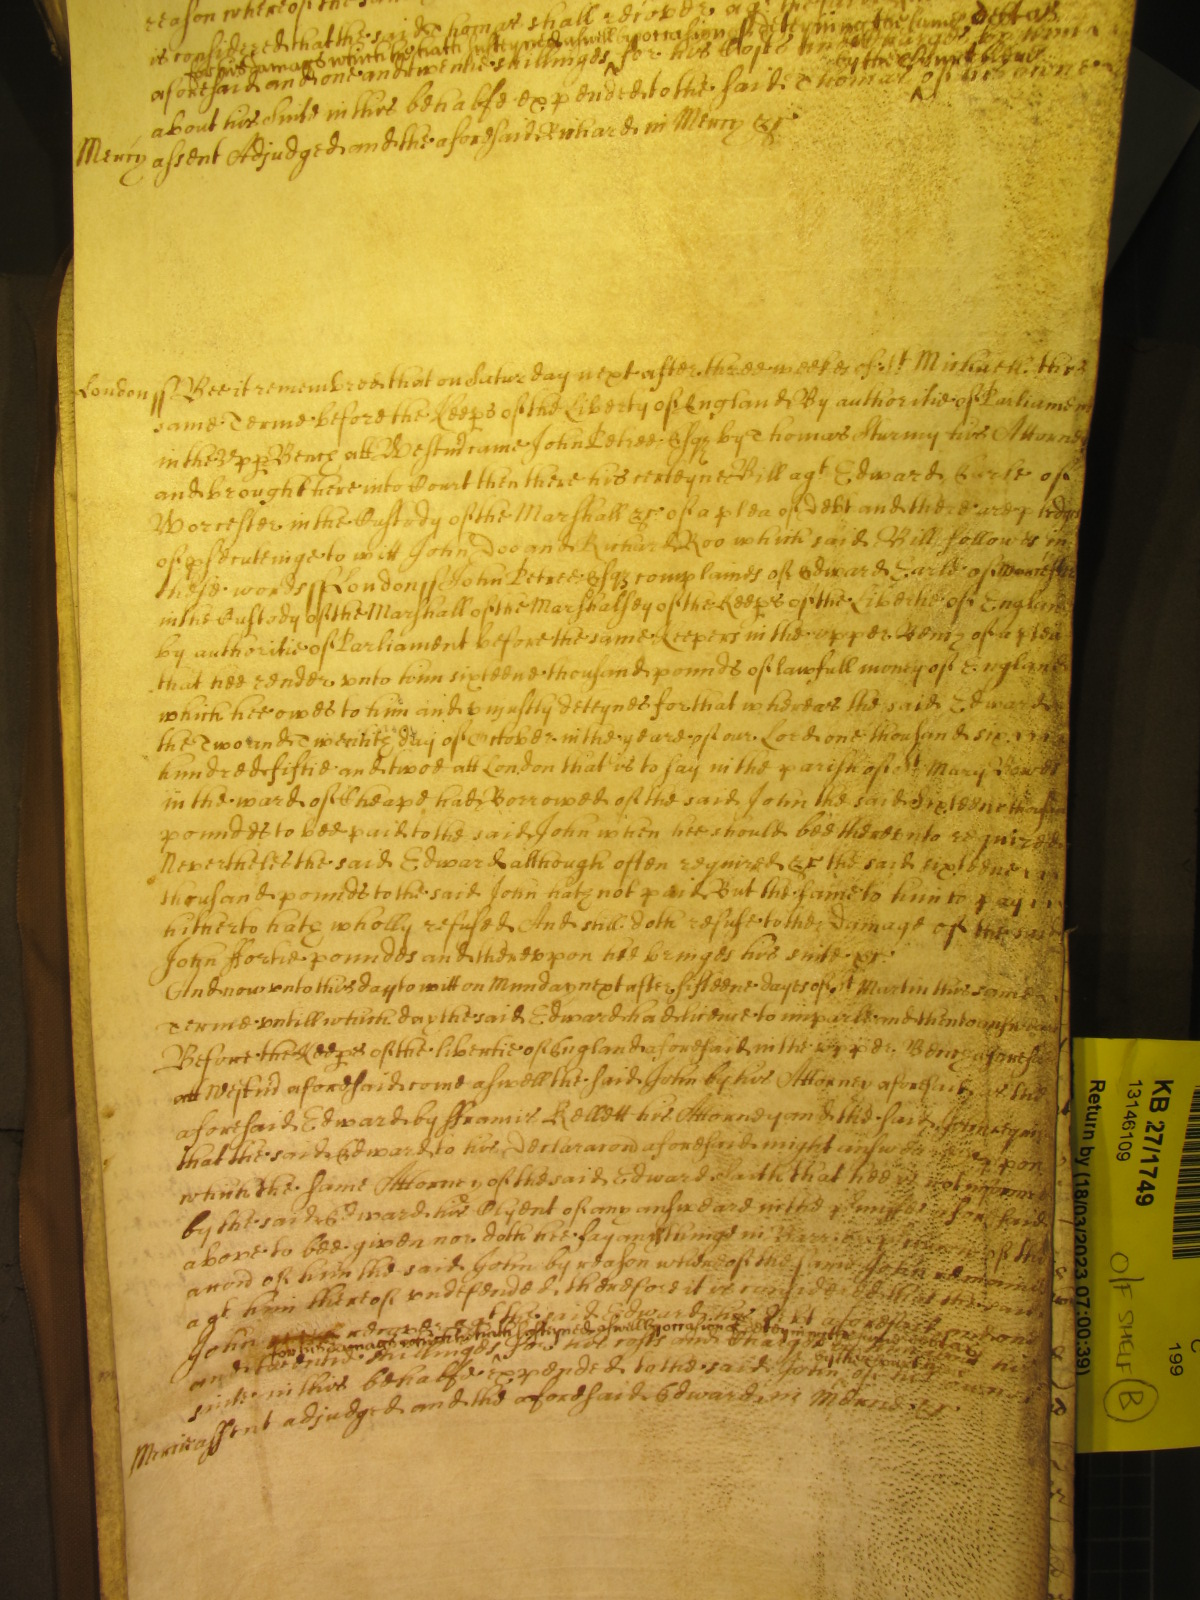 reason whereof the
is considered that the said Thomas shall recover ag<sup>t</sup>
for his damages which he hath susteyned aswell by occasion of deteyning the same debt as
aforesaid and one and twentie shillinges for his Costs and Charges by him
by the Court here
about his suite in this behalfe expended to the said Thomas of his owne
Mercy assent Adjudged and the aforesaid Richard in Mercy &c
London ss Bee it remembred that on Saturday next after three weekes of St Michaell this
same Terme before the Keeps of the Liberty of England By authoritie of Parliament
in the Upp Bench att Westm came John Petree Esqz by Thomas Sturmy his Attorney
and brought here into Court then there his certeyne Bill agt Edward Earle of
Worcester in the Custody of the Marshall &c of a plea of debt and there are pledges
of psecuteinge to witt John Doo and Richard Roo which said Bill followes in
these words ss London ss John Petree Esqz complaines of Edward Earle of Worcester
in the Custody of the Marshall of the Marshalsey of the Keeps of the Libertie of England
by authoritie of Parliament before the same Keepers in the upper Bench of a plea
that hee render unto him sixteene thousand pounds of lawfull money of England
which hee owes to him and uniustly deteynes for that whereas the said Edward
the Two and Twentith day of October in the yeare of our Lord one thousand six
hundred fiftie and twoe att London that is to say in the parish of St Mary Bowe
in the ward of Cheape had Borrowed of the said John the said sixteene thousand
poundes to bee paid to the said John when hee should bee thereunto required
Neverthelesse the said Edward although often required &c the said sixteene
thousand pounds to the said John hath not paid But the same to him to pay
hitherto hath wholly refused And still doth refuse to the Damage of the said
John ffortie poundes and thereupon hee bringes his suite &c
And now unto this day to witt on Munday next after fifteene dayes of St Martin this same
Terme untill which day the said Edward had licence to imparle and then to answeare
Before the Keeps of the libertie of England aforesaid in the upper Bench aforesaid
att Westm aforesaid come aswell the said John by his Attorney aforesaid as the
aforesaid Edward by ffrancis Kellett his Attorney and the said John
that the said Edward to his Declaracon aforesaid might answeare &c upon
which the same Attorney of the said Edward saith that hee is not informed
by the said Edward his Clyent of any answeare in the pmisses aforesaid
above to bee given nor doth hee say any thinge in Barr of the
accon of him the said John by reason whereof the same John remaines
agt him thereof undefended therefore it is considered that the said
John recover agt the said Edward his debt aforesaid and one
for his damages which he hath susteyned aswell by occasion of deteyning the same debt as
and twentie shillinges for his costs and charges by him about his
by the Court here
suite in this behalfe expended to the said John of his owne
Mercie assent adjudged and the aforesaid Edward in Mercie &c
KB 27/1749
13146109
Return by (18/03/2023 07:00:39)
C
199
Off Sharf B